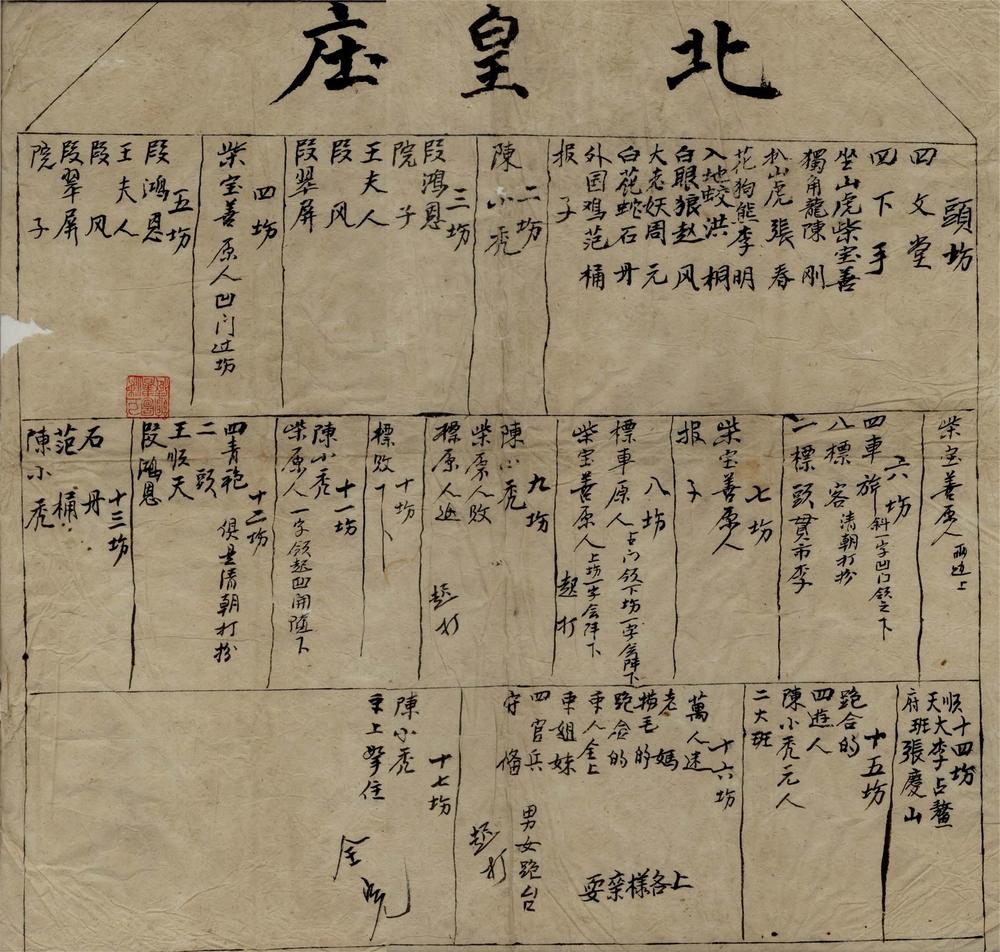 北皇庄
頭坊
四文堂
四下手
坐山虎柴宝善
獨角龍陳剛
扒山虎張春
花狗熊李明
入地蛟洪桐
白眼狼赵风
大老妖周元
白花蛇石丹
外国鸡范桶
报子
二坊
陳小秃
三坊
段鴻恩
院子
王夫人
段风
段翠屏
四坊
柴宝善原人凹门过坊
五坊
段鴻恩
王夫人
段风
段翠屏
院子
柴宝善原人两边上
六坊
四車旂斜一字凹门领之下
八標客清朝打扮
二標頭贯市李
七坊
柴宝善原人
报子
八坊
標車原人占门领下坊一字会阵下
柴宝善原人上坊一字会阵下
起打
九坊
陳小秃
柴原人败
標原人追
起打
十坊
標败下
十一坊
陳小秃
柴原人一字领起凹開随下
十二坊
四青袍俱是清朝打扮
二頭
王順天
段鴻恩
十三坊
石丹
范桶
陳小秃
十四坊
順天大李占鳌
府班張慶山
十五坊
跑合的
四遊人
陳小秃元人
二大班
十六坊
萬人迷
老媽
捞毛的
跑合的
東人全上
東姐妹
四官兵
守俻
男女跑台
上各樣杂耍
起打
十七坊
陳小秃
上拏住
全完